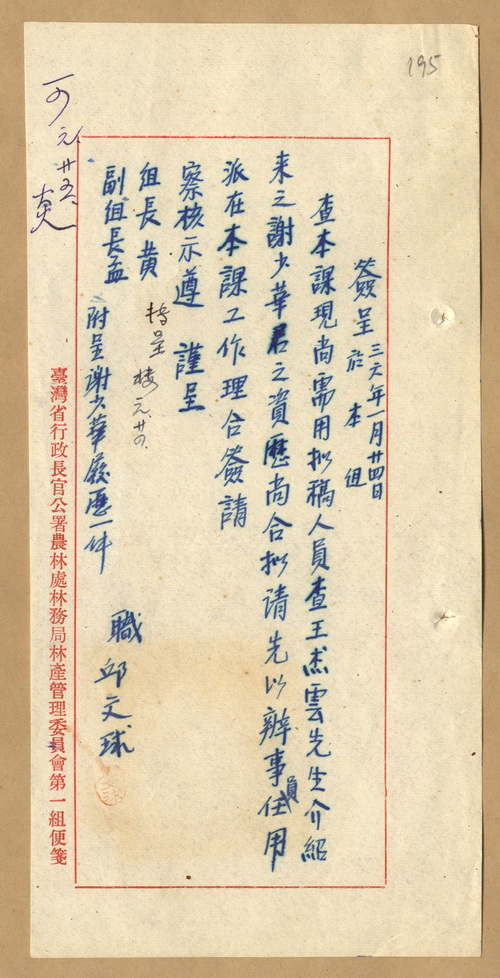 195
簽呈 三六年一月廿四日
於本組
查本課現尚需用拟稿人員查王杰雲先生介紹
来之謝少華君之資歷尚合拟請先以辦事員任用
派在本課工作理合簽請
察核示遵 謹呈
組長黄
副組長孟
轉呈 元.廿四.
附呈謝少華履歷一件
職邱文球
可 元.廿五.
臺灣省行政長官公署農林處林務局林產管理委員會第一組便箋